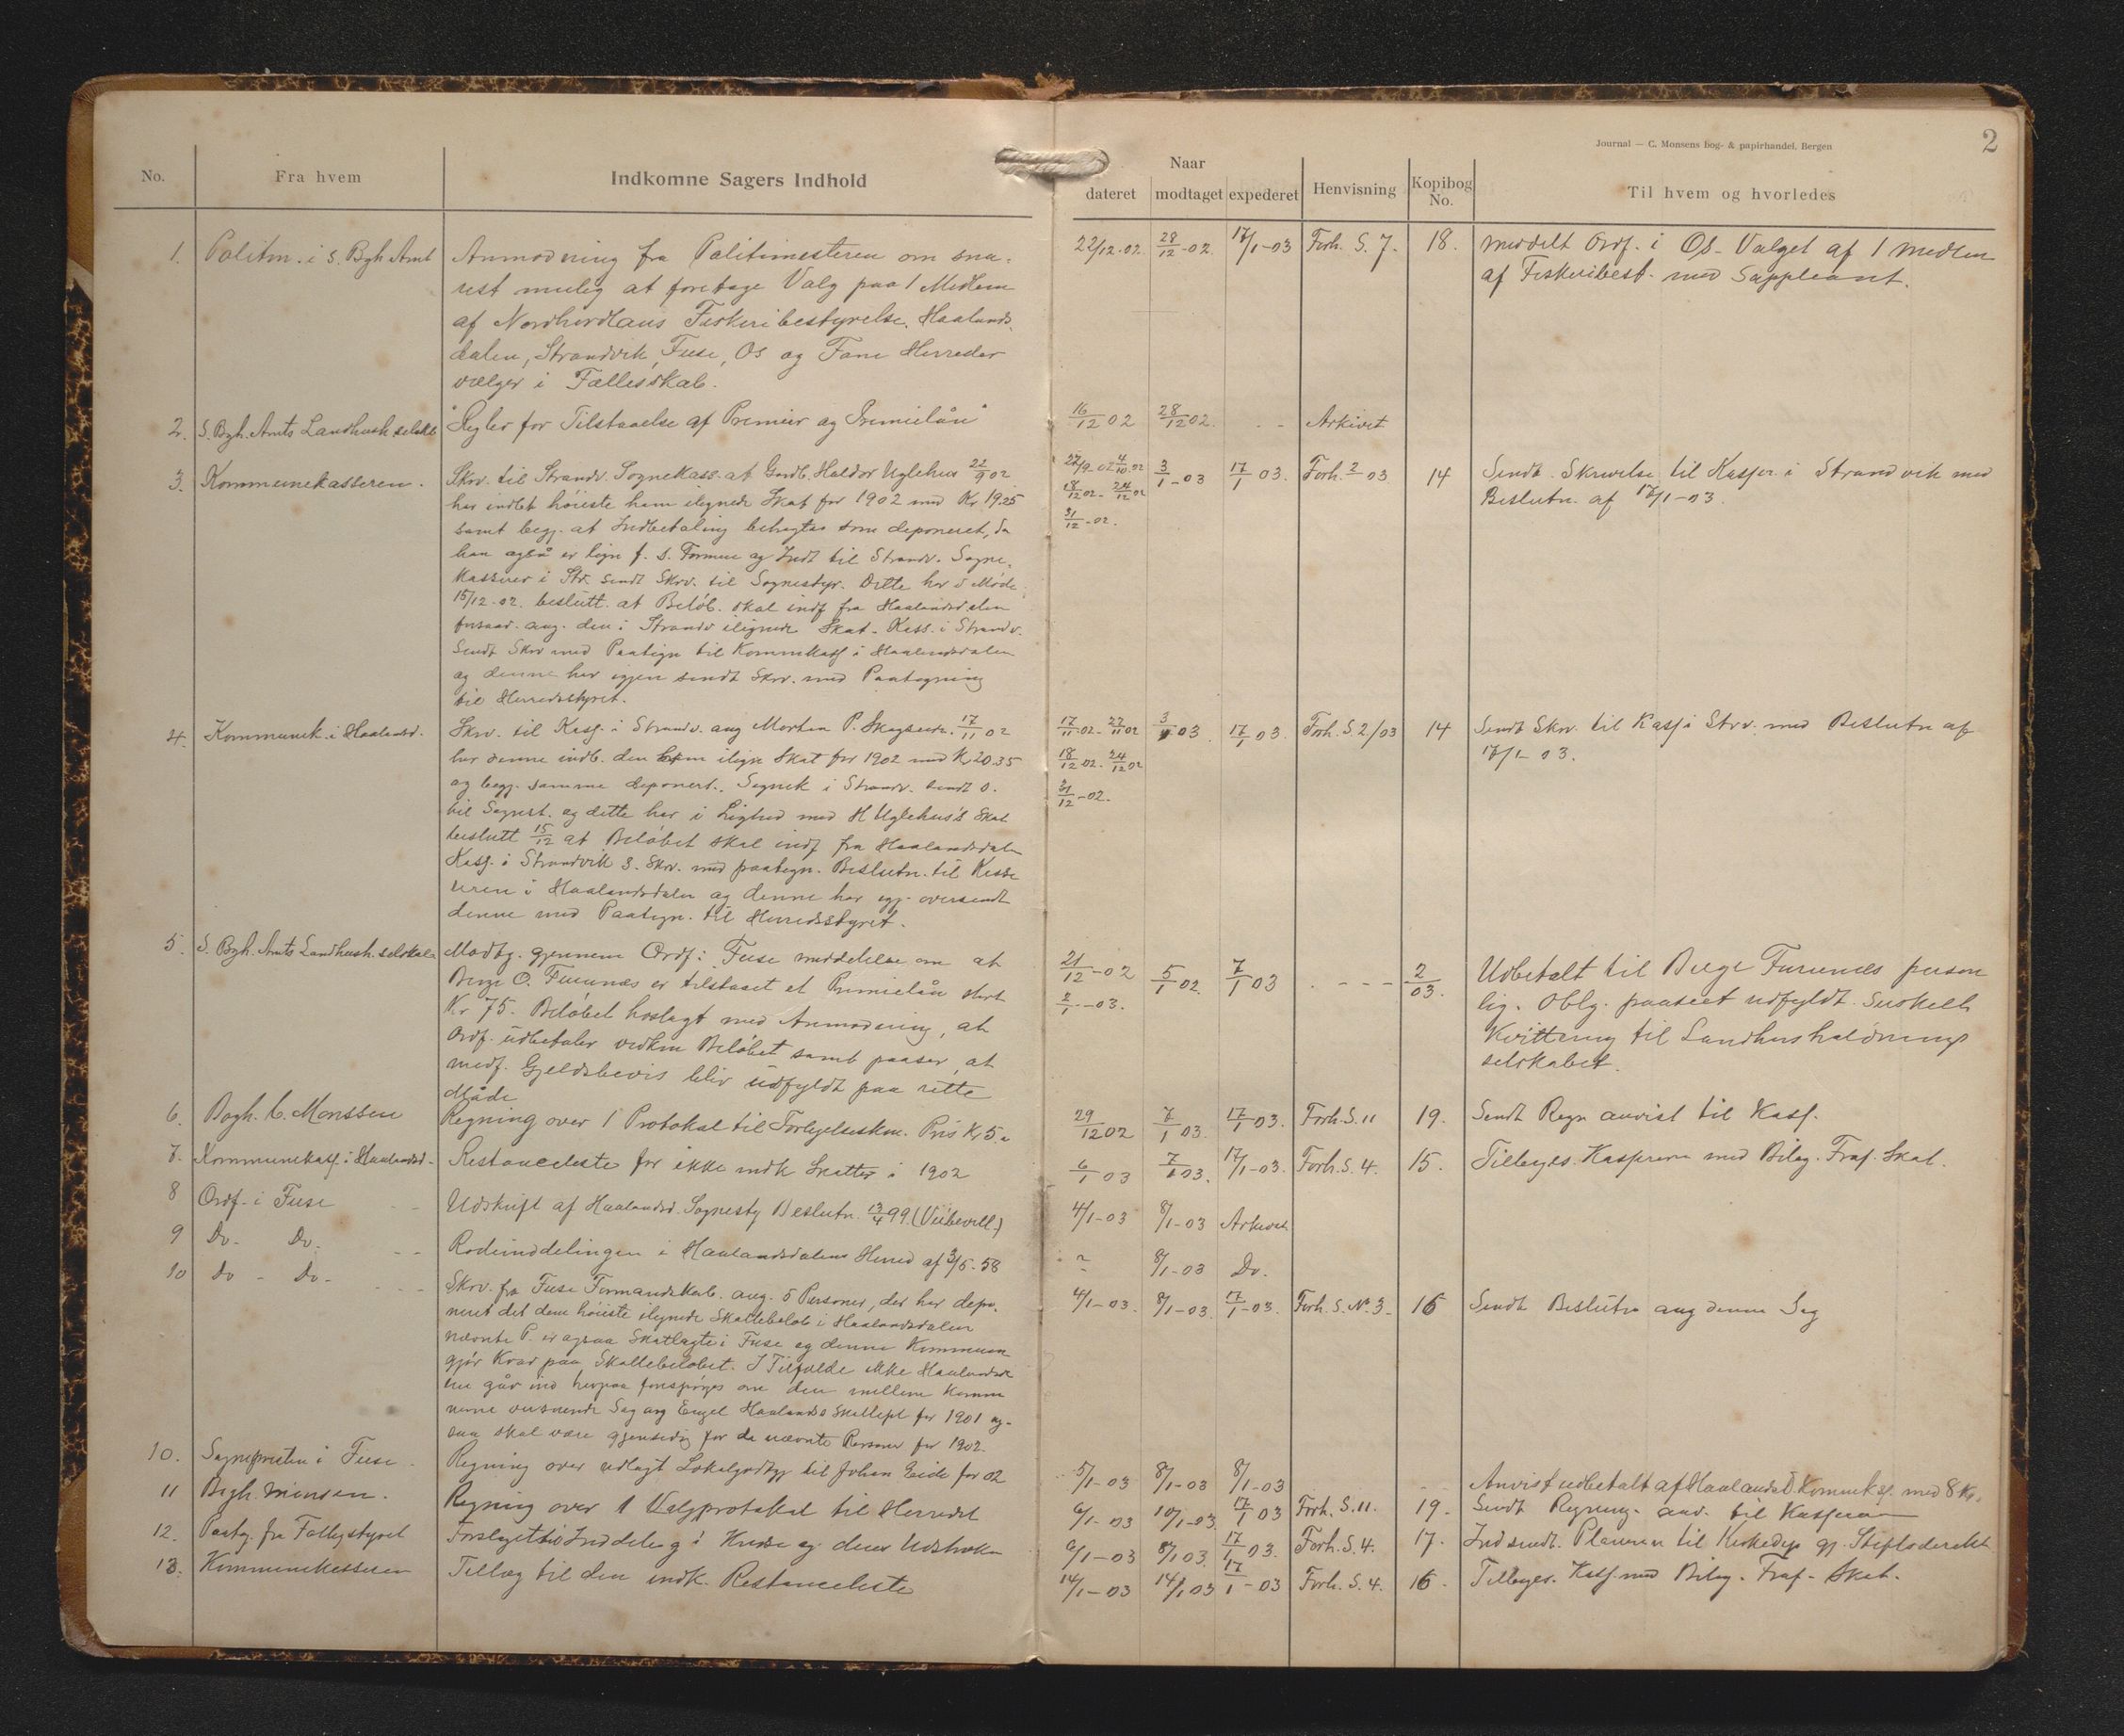 Journal — C. Monsens bog- & papirhandel, Bergen
2
No.
Fra hvem
Indkomne Sagers Indhold
Naar
dateret
modtaget
expederet
Henvisning
Kopibog No.
Til hvem og hvorledes
1. Politm. i S. Bgh Amt
Anmodning fra Politimesteren om sna-
rest mulig at foretage Valg paa 1 Medlem
af Nordhordlans Fiskeribestyrelse. Haalands-
dalen, Strandvik, Fuse, Os og Fane Herreder
vælger i Fællesskab.
22/12-02. 28/12-02. 17/1-03 Forh. S. 7. 18.
meddelt Ordf. i Os- Valget af 1 medlem
af Fiskeribest. med Suppleant.
2. S. Bgh. Amts Landhush. selskb
"Regler for Tilstaaelse af Premier og Premielån"
16/12 02 28/12 02. - - Arkivet
3. Kommunekasseren.
Skrv. til Strandv. Sognekass. at Gardb. Haldor Uglehus 22/9 02
har indbt høieste ham ilignede Skat for 1902 med Kr 19.25
samt begj. at Indbetaling betragtes som deponeret, da
han også er lign f. s. Formue og Indt til Strandv. Sogne-
kasserer i Str. sendt Skrv. til Sognestyr. Dette har i Møde
15/12-02. beslutt. at Beløb. skal indf fra Haalandsdalen
forsaav. ang. den i Strandv ilignede Skat. Kass. i Strandv.
Sendt Skrv med Paategn til Kommkass i Haalandsdalen
og denne har igjen sendt Skrv. med Paategning
til Herredsstyret.
22/9-02 4/10-02 3/1-03 17/1 03. Forh. 2/03 14
18/12 02. 24/12 02
31/12-02.
Sendt Skrivelse til Kasser i Strandvik med
Beslutn. af 17/1-03.
4. Kommunek. i Haalandsd.
Skrv. til Kass. i Strandv. ang Morten P. 17/11 02
har denne indb. den ham ilign Skat for 1902 med K 20.35
og begj. samme deponert. Sognek i Strandv. sendt S.
til Sognest. og dette har i Lighed med H Uglehus's Skat
beslutt 15/12 at Beløbet skal indf fra Haalandsdalen
Kass. i Strandvik S. Skrv. med paategn. Beslutn. til Kasse
reren i Haalandsdalen og denne har igj. oversendt
denne med Paategn. til Herredsstyret.
17/11 02. 22/11 02 3/1 03. 17/1 03. Forh. S. 2/03 14
18/12 02. 24/12 02
31/12-02.
Sendt Skrv. til Kass i Strv. med Beslutn af
17/1-03.
5. S. Bgh. Amts Landhush. selskab
Modtg. gjennem Ordf. i Fuse meddelelse om at
Berge O. Furunæs er tilstaaet et Premielån stort
Kr 75. Beløbet hoslagt med Anmodning, at
Ordf. udbetaler vedkm Beløbet samt paaser, at
medf. Gjeldsbevis bliv udfyldt paa rette
Måde
21/12-02 5/1 02. 7/1 03 - - - - 2/03.
2/1-03.
Udbetalt til Berge Furunæs person
lig. Oblg. paaseet udfyldt.
Kvittering til Landhusholdnings
selskabet.
6. Bogh. C. Monssen
Regning over 1 Protokol til Forligelseskm. Pris Kr 5.
29/12 02 7/1 03. 17/1 03. Forh. S. 11 19.
Sendt Regn anvist til Kass.
7. Kommunekass. i Haalandsd.
Restanceliste for ikke indk Skatter i 1902
6/1 03 7/1 03. 17/1-03. Forh. S. 4. 15.
Tilbages. Kasseren med Bilag. Fraf. Skat.
8 Ordf. i Fuse
Udskrift af Haalandsd. Sognesty Beslutn. 13/4 99. (Veibevill.)
4/1-03 8/1-03 Arkivet
9 Do. Do.
Rodeinddelingen i Haalandsdalens Herred af 3/6-58
8/1-03 Do.
10 Do - Do -
Skrv. fra Fuse Formandskab. ang. 5 Personer, der har depo-
neret det dem høieste ilignede Skattebeløb i Haalandsdalen
nævnte P. er ogsaa Skatlagte i Fuse og denne Kommune
gjør Krav paa Skattebeløbet. I Tilfælde ikke Haalandsda
len går ind herpaa forespørges om den mellem Kommu
nerne verserende Sag ang Engel Haalands Skattepl for 1901 og-
saa skal være gjensidig for de nævnte Personer for 1902.
4/1-03. 8/1-03. 17/1-03. Forh. S. No. 3. 16
Sendt Beslutn ang denne Sag
10. Sognepresten i Fuse.
Regning over udlagt Lokalgodtgj til Johan Eide for 02
5/1-03 8/1-03 8/1-03
Anvist udbetalt af Haalandsd. Kommunekass. med 8 Kr.
11 Bogh. Monsen.
Regning over 1 Valgprotokol til Herredet
6/1-03 10/1-03. 17/1 03 Forh. S. 11. 19.
Sendt Regning. anv. til Kasseren
12. Paateg. fra Fattigstyret
6/1-03 8/1 03. 17/1-03. Forh. S. 4. 17.
Indsendt. Planen til Kirkedep gj. Stiftsdirekt
13. Kommunekasseren
Tillæg til den indk. Restanceliste
14/1-03 14/1 03 17/1-03 Forh. S. 4. 16
Tilbages. Kass. med Bilag. Fraf. Skat.